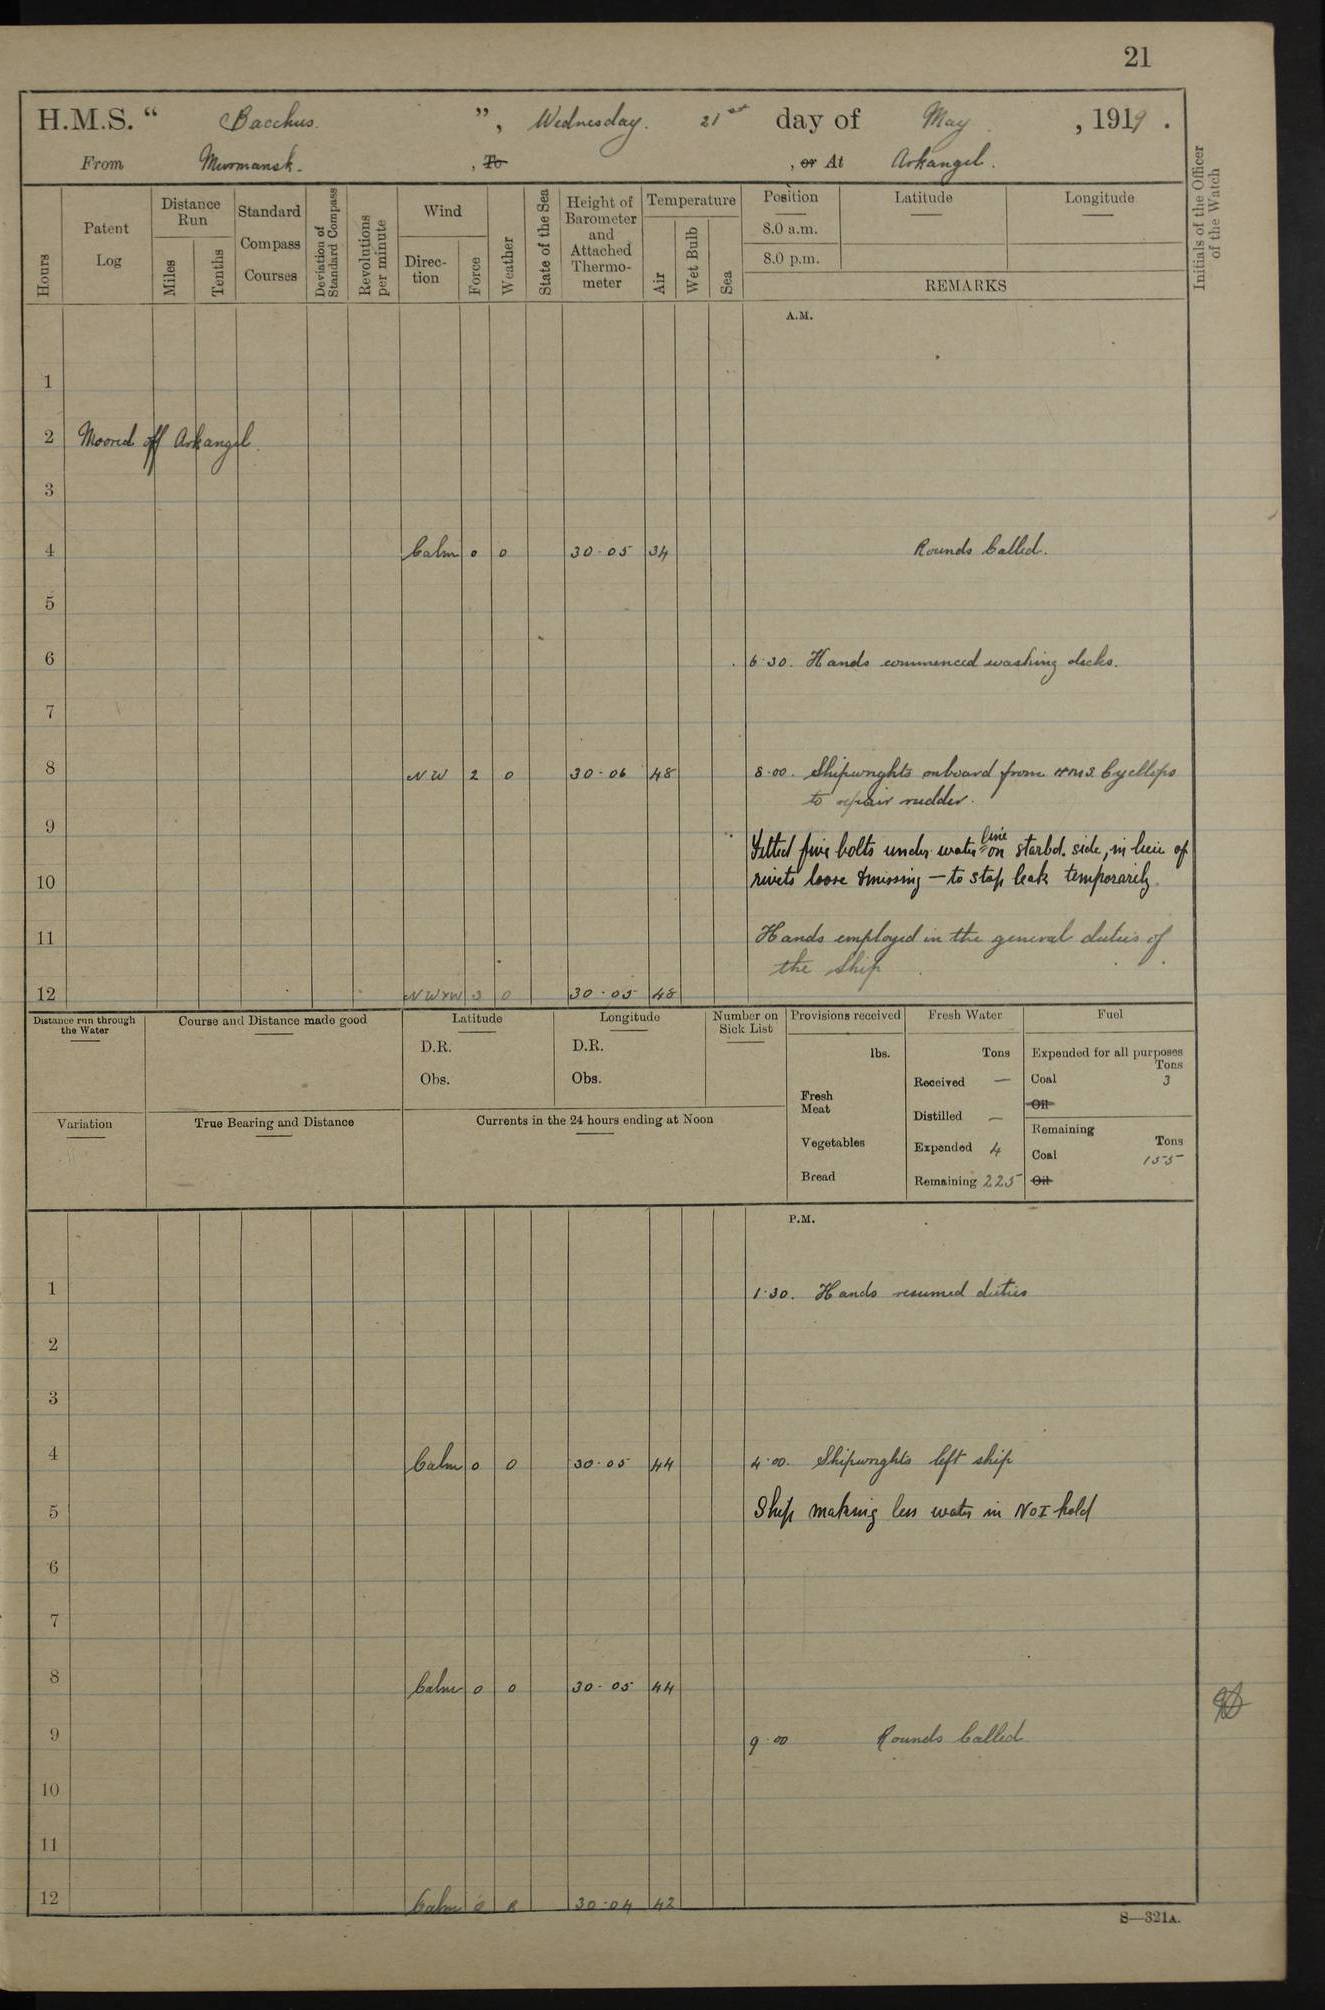 21
H.M.S. “ Bacchus. ”, Wednesday. 21st day of May, 1919.
From Murmansk. , To , or At Arkangel.
Hours
Patent Log
Distance Run
Miles
Tenths
Standard Compass Courses
Deviation of Standard Compass
Revolutions per minute
Wind
Direction
Force
Weather
State of the Sea
Height of Barometer and Attached Thermometer
Temperature
Air
Wet Bulb
Sea
Position
8.0 a.m.
8.0 p.m.
Latitude
Longitude
REMARKS
Initials of the Officer of the Watch
A.M.
1
2 Moored off Arkangel.
3
4 Calm 0 0 30·05 34 Rounds Called.
5
6 6·30. Hands commenced washing decks.
7
8 NW 2 0 30·06 48 8·00. Shipwrights onboard from HMS Cycllops
to repair rudder.
9 Fitted five bolts under water line on starbd. side, in lieu of
10 rivets loose & missing — to stop leak temporarily.
11 Hands employed in the general duties of
the ship
12 NWxW 3 0 30·05 48
Distance run through the Water
Course and Distance made good
Latitude
D.R.
Obs.
Longitude
D.R.
Obs.
Number on Sick List
Provisions received
lbs.
Fresh Meat
Vegetables
Bread
Fresh Water
Tons
Received —
Distilled —
Expended 4
Remaining 225
Fuel
Expended for all purposes
Tons
Coal 3
Oil
Remaining
Tons
Coal 155
Oil
Variation
True Bearing and Distance
Currents in the 24 hours ending at Noon
P.M.
1 1·30. Hands resumed duties
2
3
4 Calm 0 0 30·05 44 4·00. Shipwrights left ship
5 Ship making less water in No I hold
6
7
8 Calm 0 0 30·05 44
9 9·00 Rounds Called
10
11
12 Calm 0 30·04 42
S—321A.